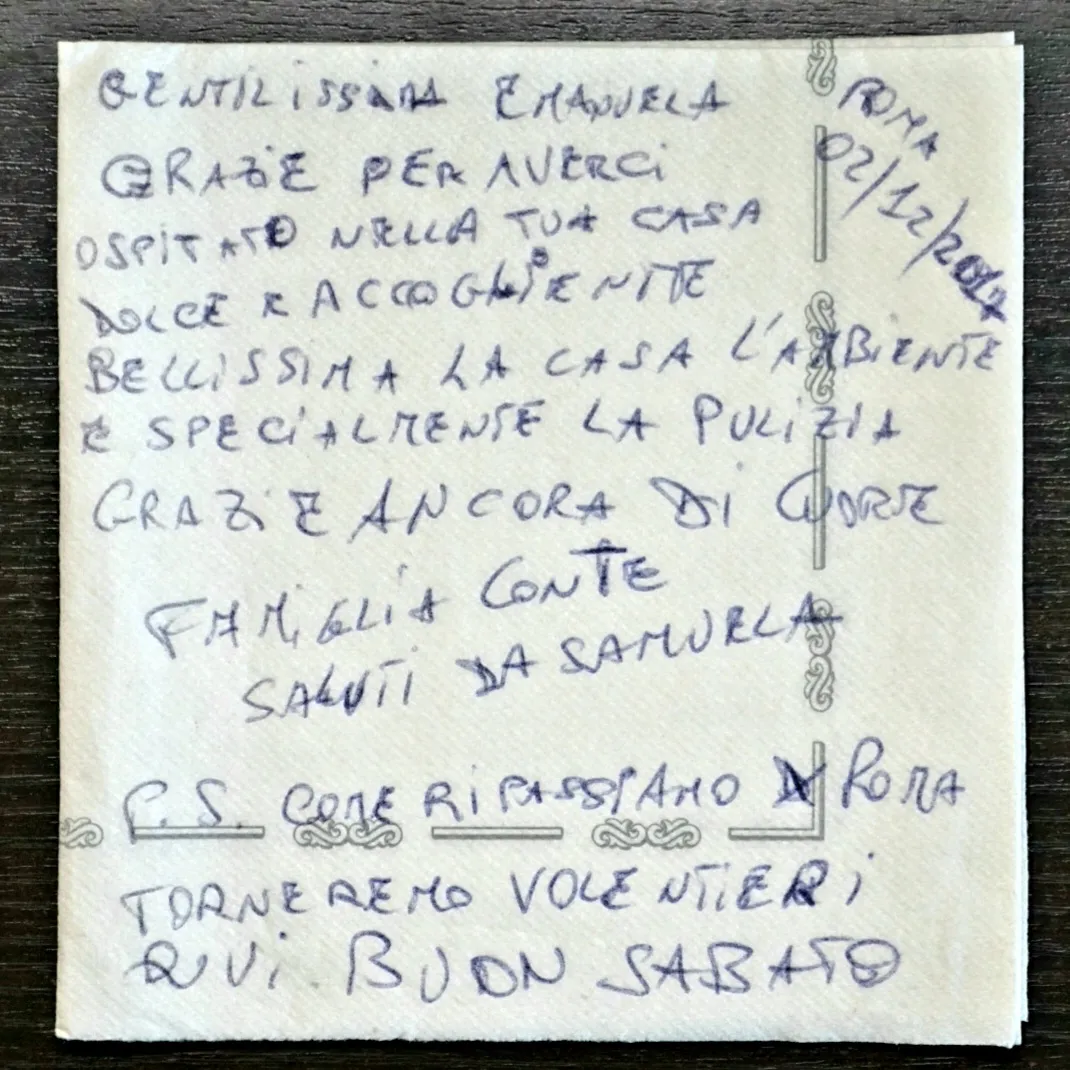 GENTILISSIMA EMANUELA
ROMA
02/12/2017
GRAZIE PER AVERCI
OSPITATO NELLA TUA CASA
DOLCE E ACCOGLIENTE
BELLISSIMA LA CASA L'AMBIENTE
E SPECIALMENTE LA PULIZIA
GRAZIE ANCORA DI CUORE
FAMIGLIA CONTE
SALUTI DA SAMUELA
P.S. COME RIPASSIAMO A ROMA
TORNEREMO VOLENTIERI
QUI. BUON SABATO